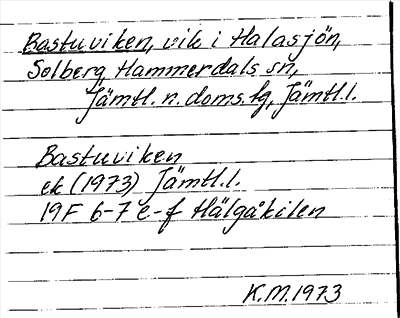 Bastuviken, vik i Halasjön,
Solberg, Hammerdals sn,
Jämtl. n. doms. tg, Jämtl.l.
Bastuviken
ek (1973) Jämtl.l.
19F 6-7 e-f Hälgåkilen
K.M. 1973